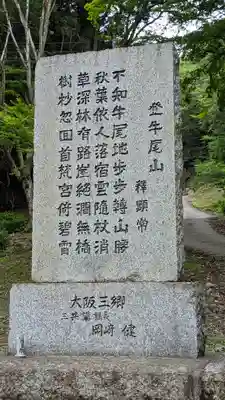 登牛尾山
釋顯常
不知牛尾地歩歩轉山腰
秋葉依人落宿雲隨杖消
草深林有路崖絶澗無橋
樹杪忽囬首梵宮倚碧霄
大阪三郷
岡崎健